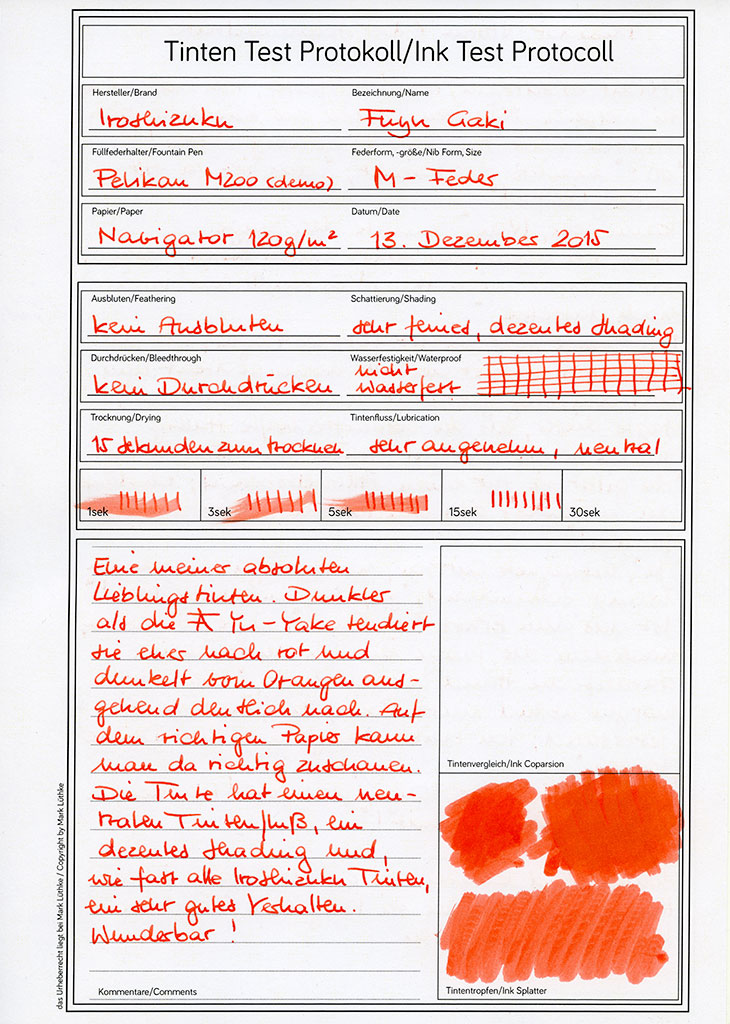 Tinten Test Protokoll/Ink Test Protocoll
Hersteller/Brand
Bezeichnung/Name
Iroshizuku
Fuyu Gaki
Füllfederhalter/Fountain Pen
Federform, -größe/Nib Form, Size
Pelikan M200 (demo)
M - Feder
Papier/Paper
Datum/Date
Navigator 120g/m²
13. Dezember 2015
Ausbluten/Feathering
Schattierung/Shading
kein Ausbluten
sehr feines, dezentes Shading
Durchdrücken/Bleedthrough
Wasserfestigkeit/Waterproof
kein Durchdrücken
nicht
wasserfest
Trocknung/Drying
Tintenfluss/Lubrication
15 Sekunden zum trocknen
sehr angenehm, neutral
1sek
3sek
5sek
15sek
30sek
Eine meiner absoluten
Lieblingstinten. Dunkler
als die Yu-Yake tendiert
sie eher nach rot und
dunkelt vom Orangen aus-
gehend deutlich nach. Auf
dem richtigen Papier kann
man da richtig zuschauen.
Die Tinte hat einen neu-
tralen Tintenfluß, ein
dezentes Shading und,
wie fast alle Iroshizuku Tinten,
ein sehr gutes Verhalten.
Wunderbar!
Kommentare/Comments
Tintenvergleich/Ink Coparsion
Tintentropfen/Ink Splatter
das Urheberrecht liegt bei Mark Lüthke / Copyright by Mark Lüthke